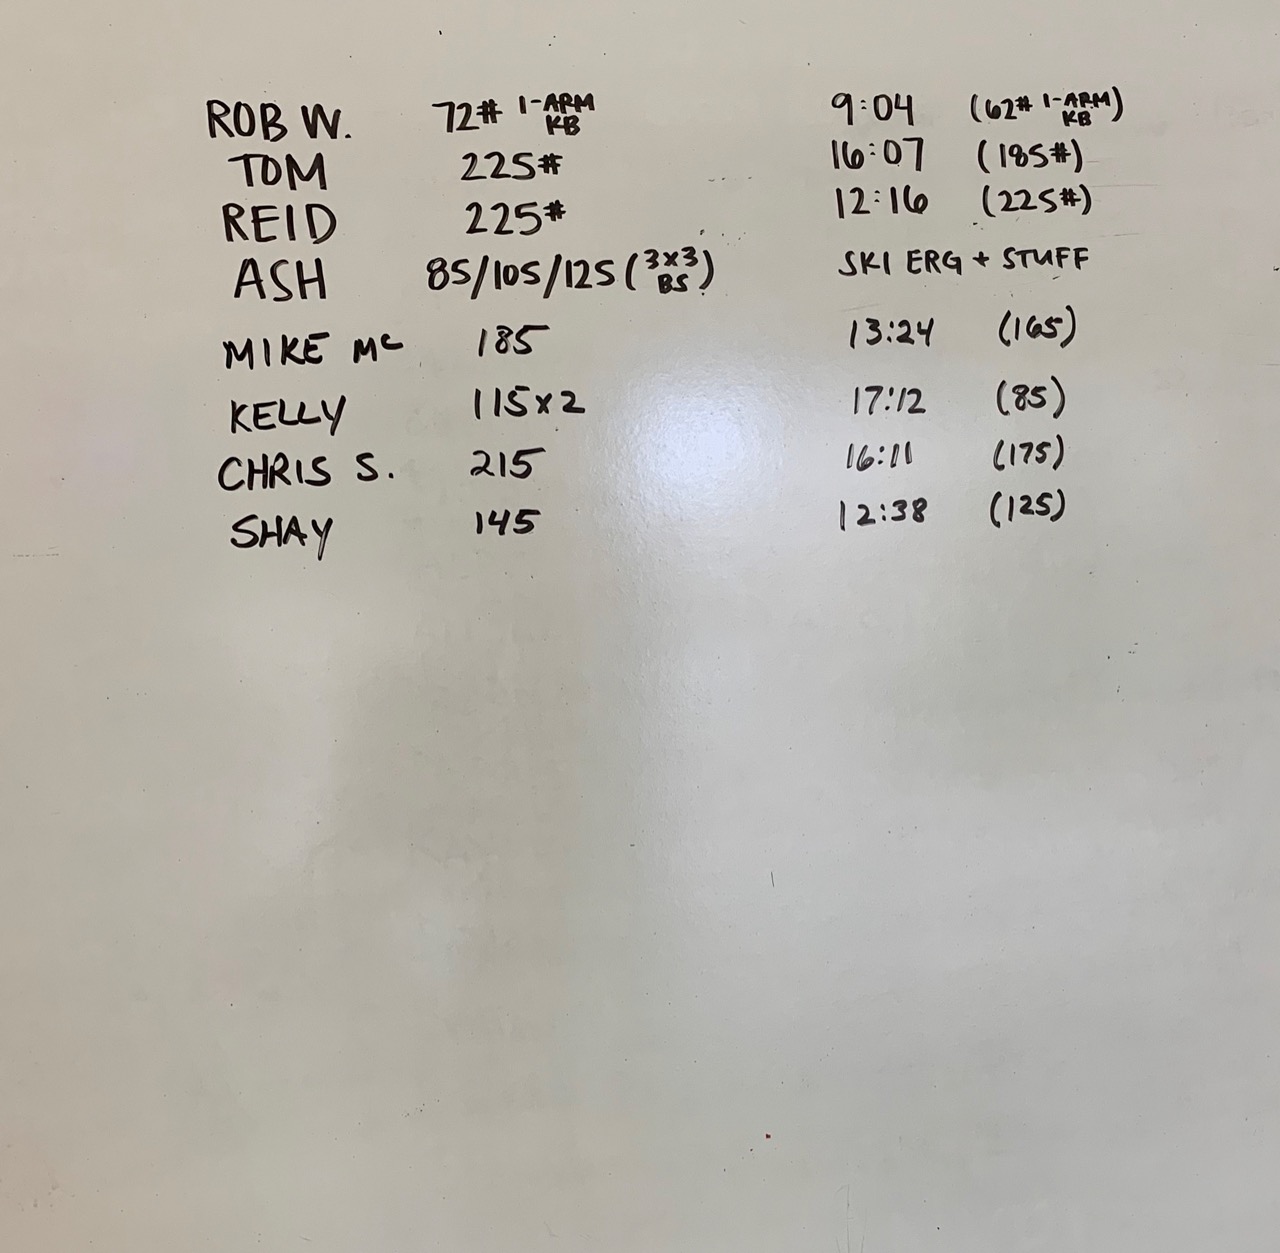 ROB W. 72# 1-ARM KB 9:04 (62# 1-ARM KB)
TOM 225# 16:07 (185#)
REID 225# 12:16 (225#)
ASH 85/105/125 (3x3 BS) SKI ERG + STUFF
MIKE Mc 185 13:24 (165)
KELLY 115x2 17:12 (85)
CHRIS S. 215 16:11 (175)
SHAY 145 12:38 (125)